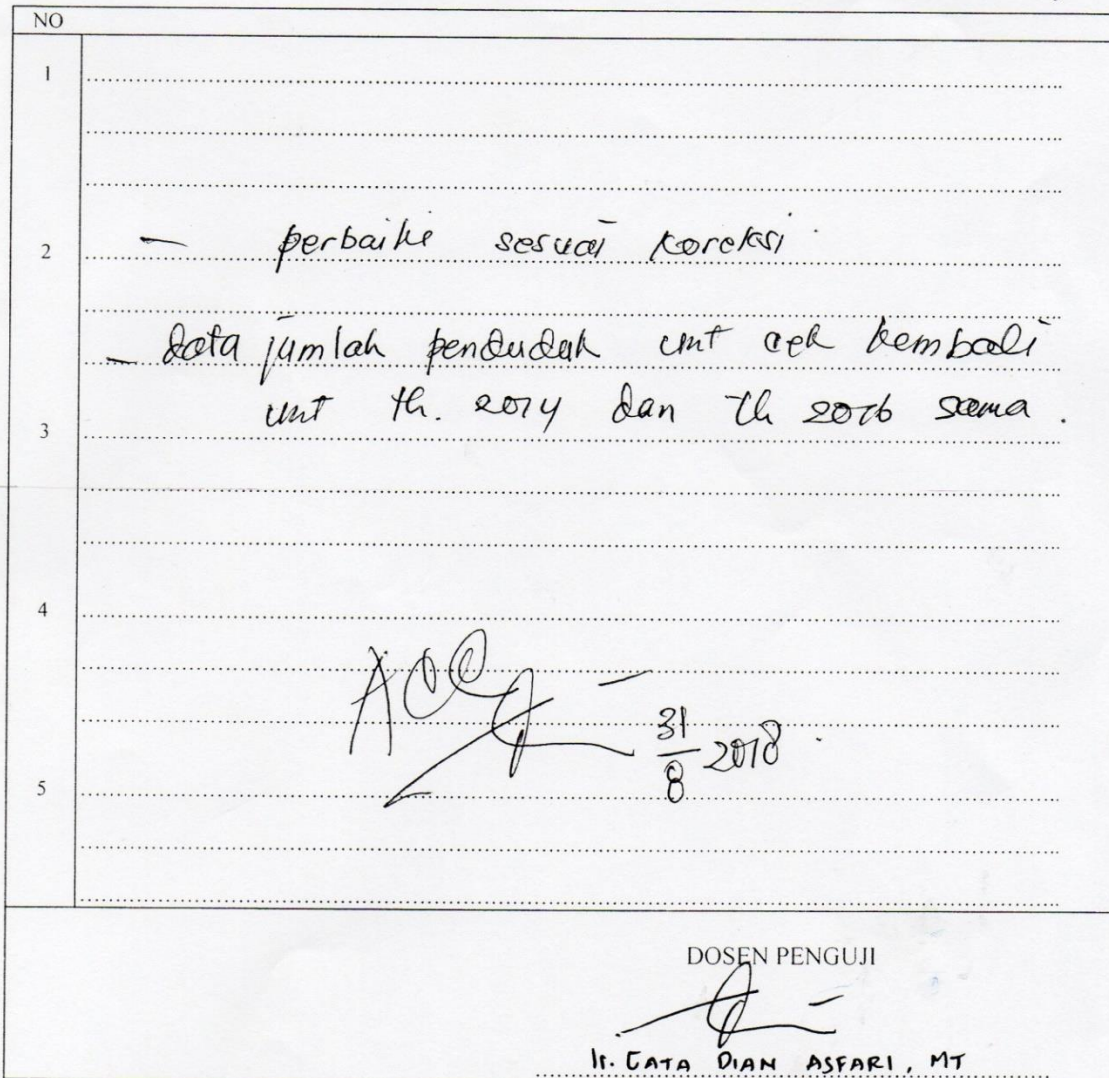 NO
1
2
- perbaiki sesuai koreksi.
- data jumlah penduduk unt cek kembali
unt th. 2014 dan th 2016 sama.
3
4
ACC
31/8 2018.
5
DOSEN PENGUJI
Ir. GATA DIAN ASFARI, MT